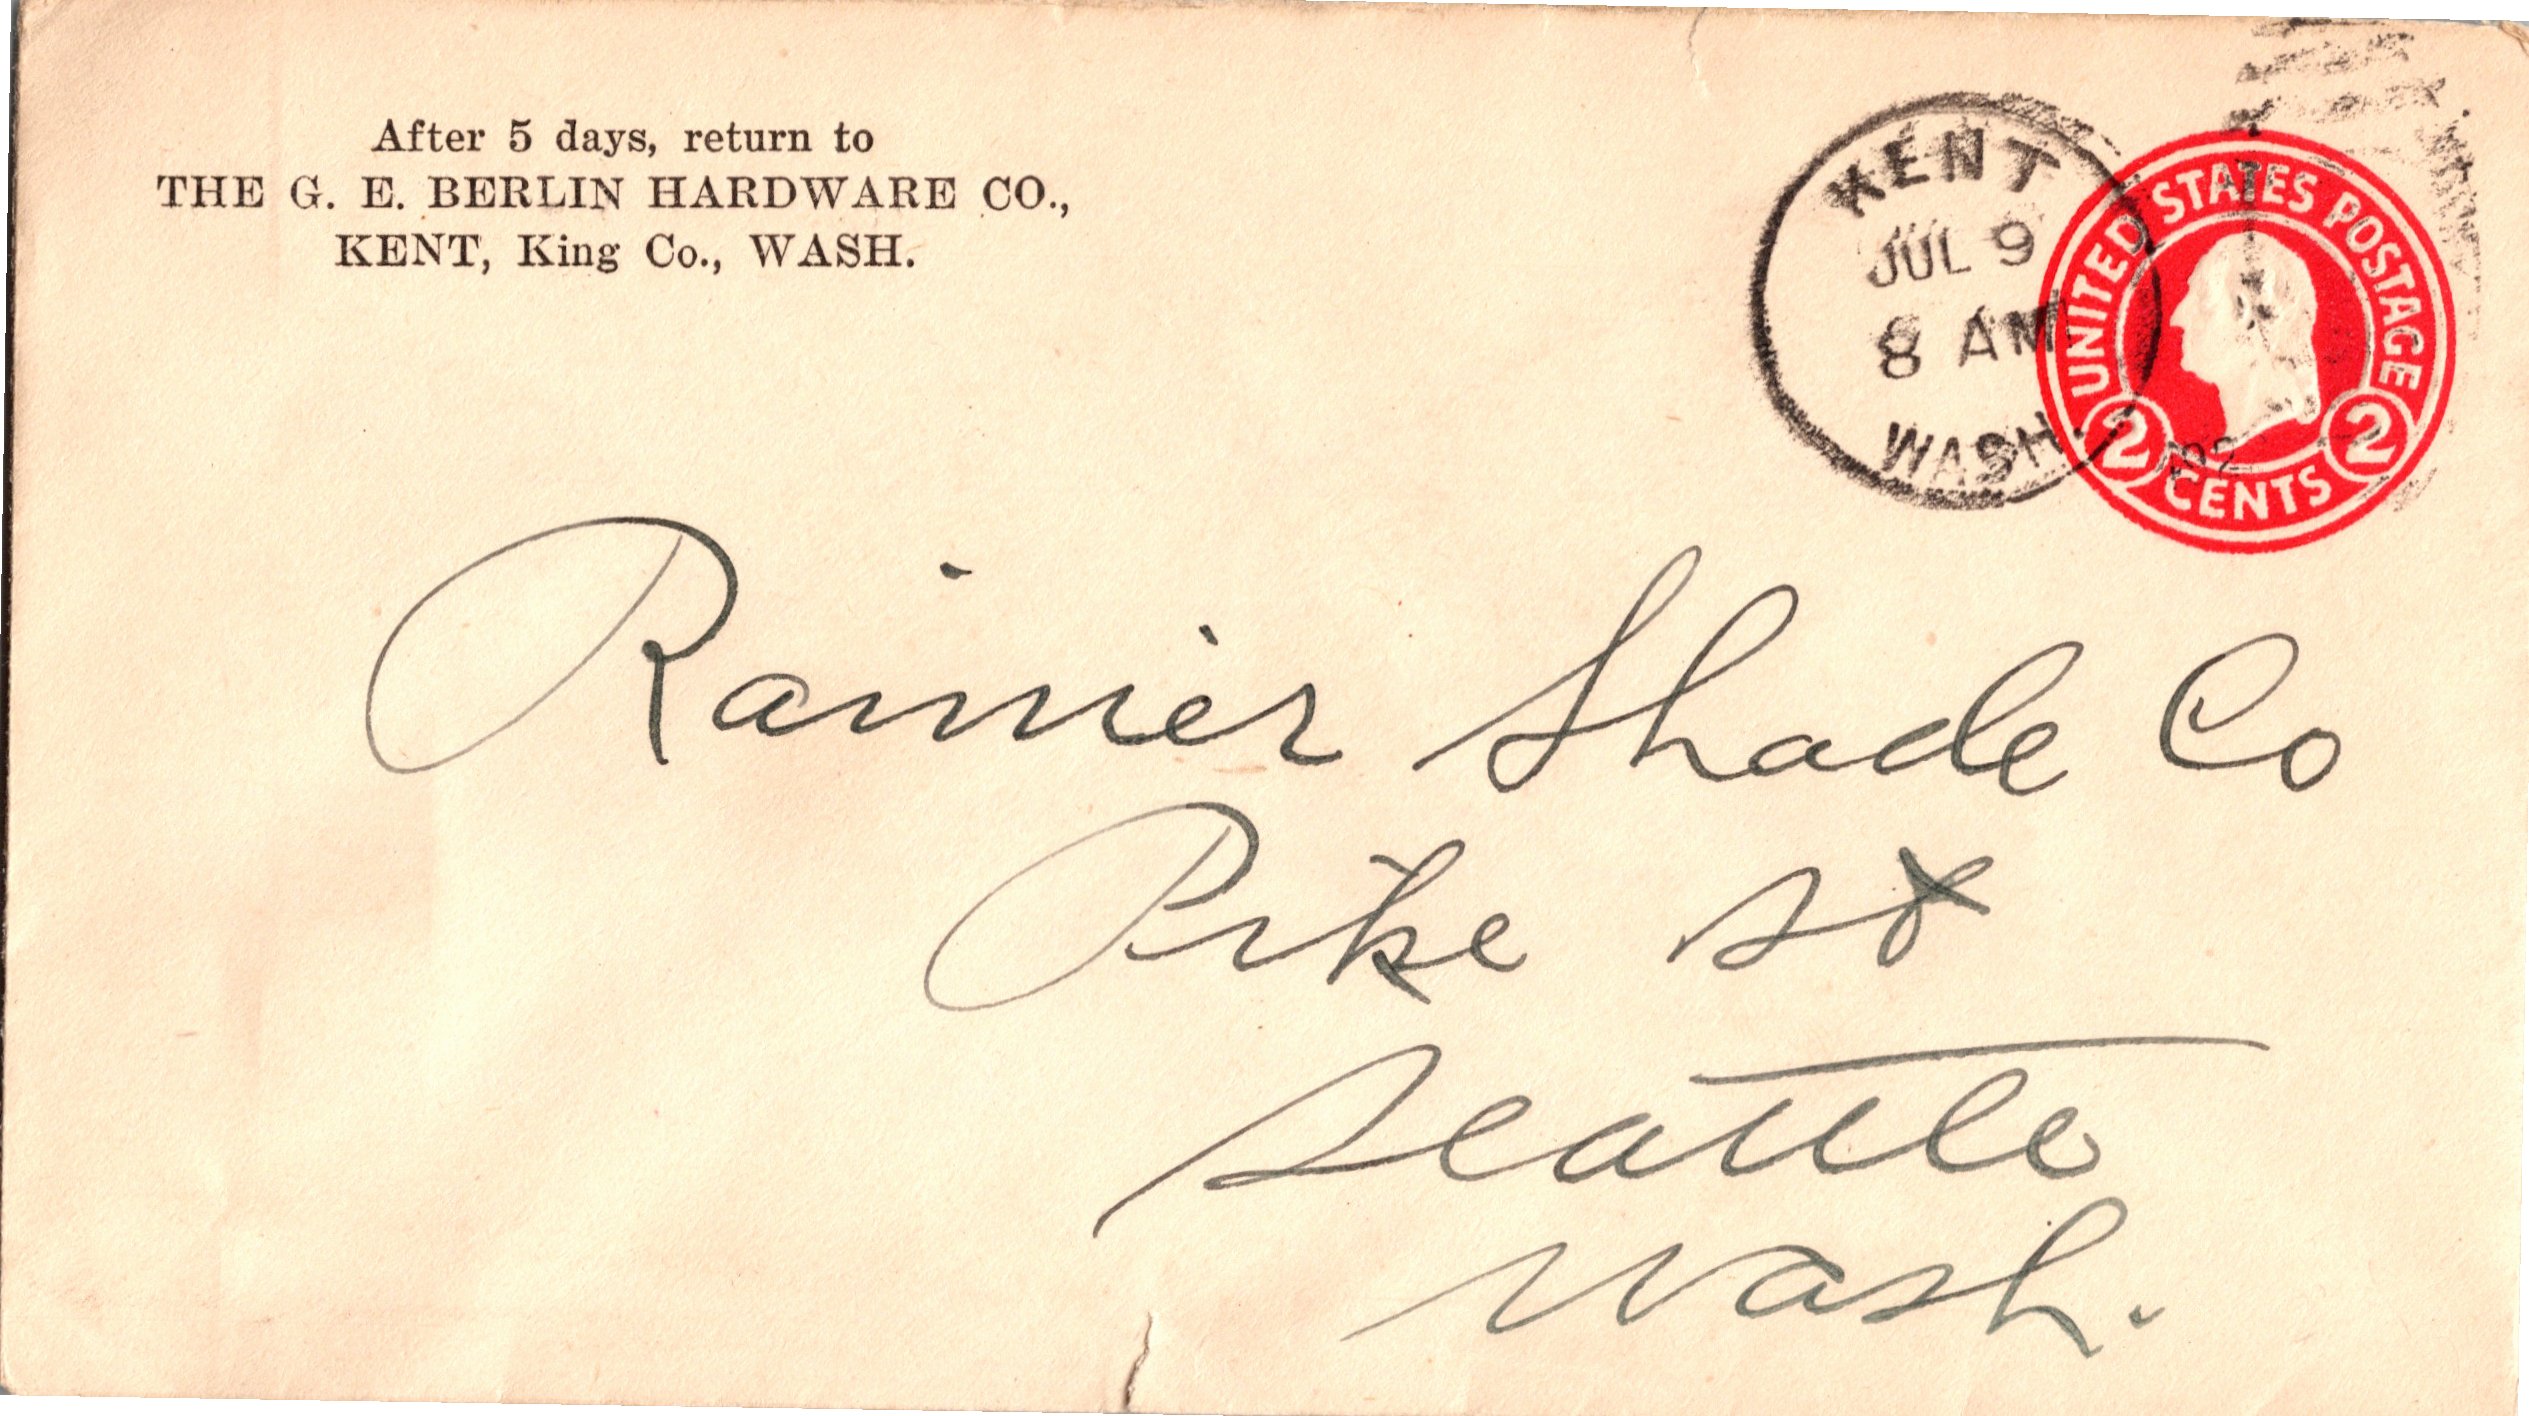 After 5 days, return to
THE G. E. BERLIN HARDWARE CO.,
KENT, King Co., WASH.
KENT
JUL 9
8 AM
WASH.
UNITED STATES POSTAGE
2 CENTS 2
Rainier Shade Co
Pike St
Seattle
Wash.